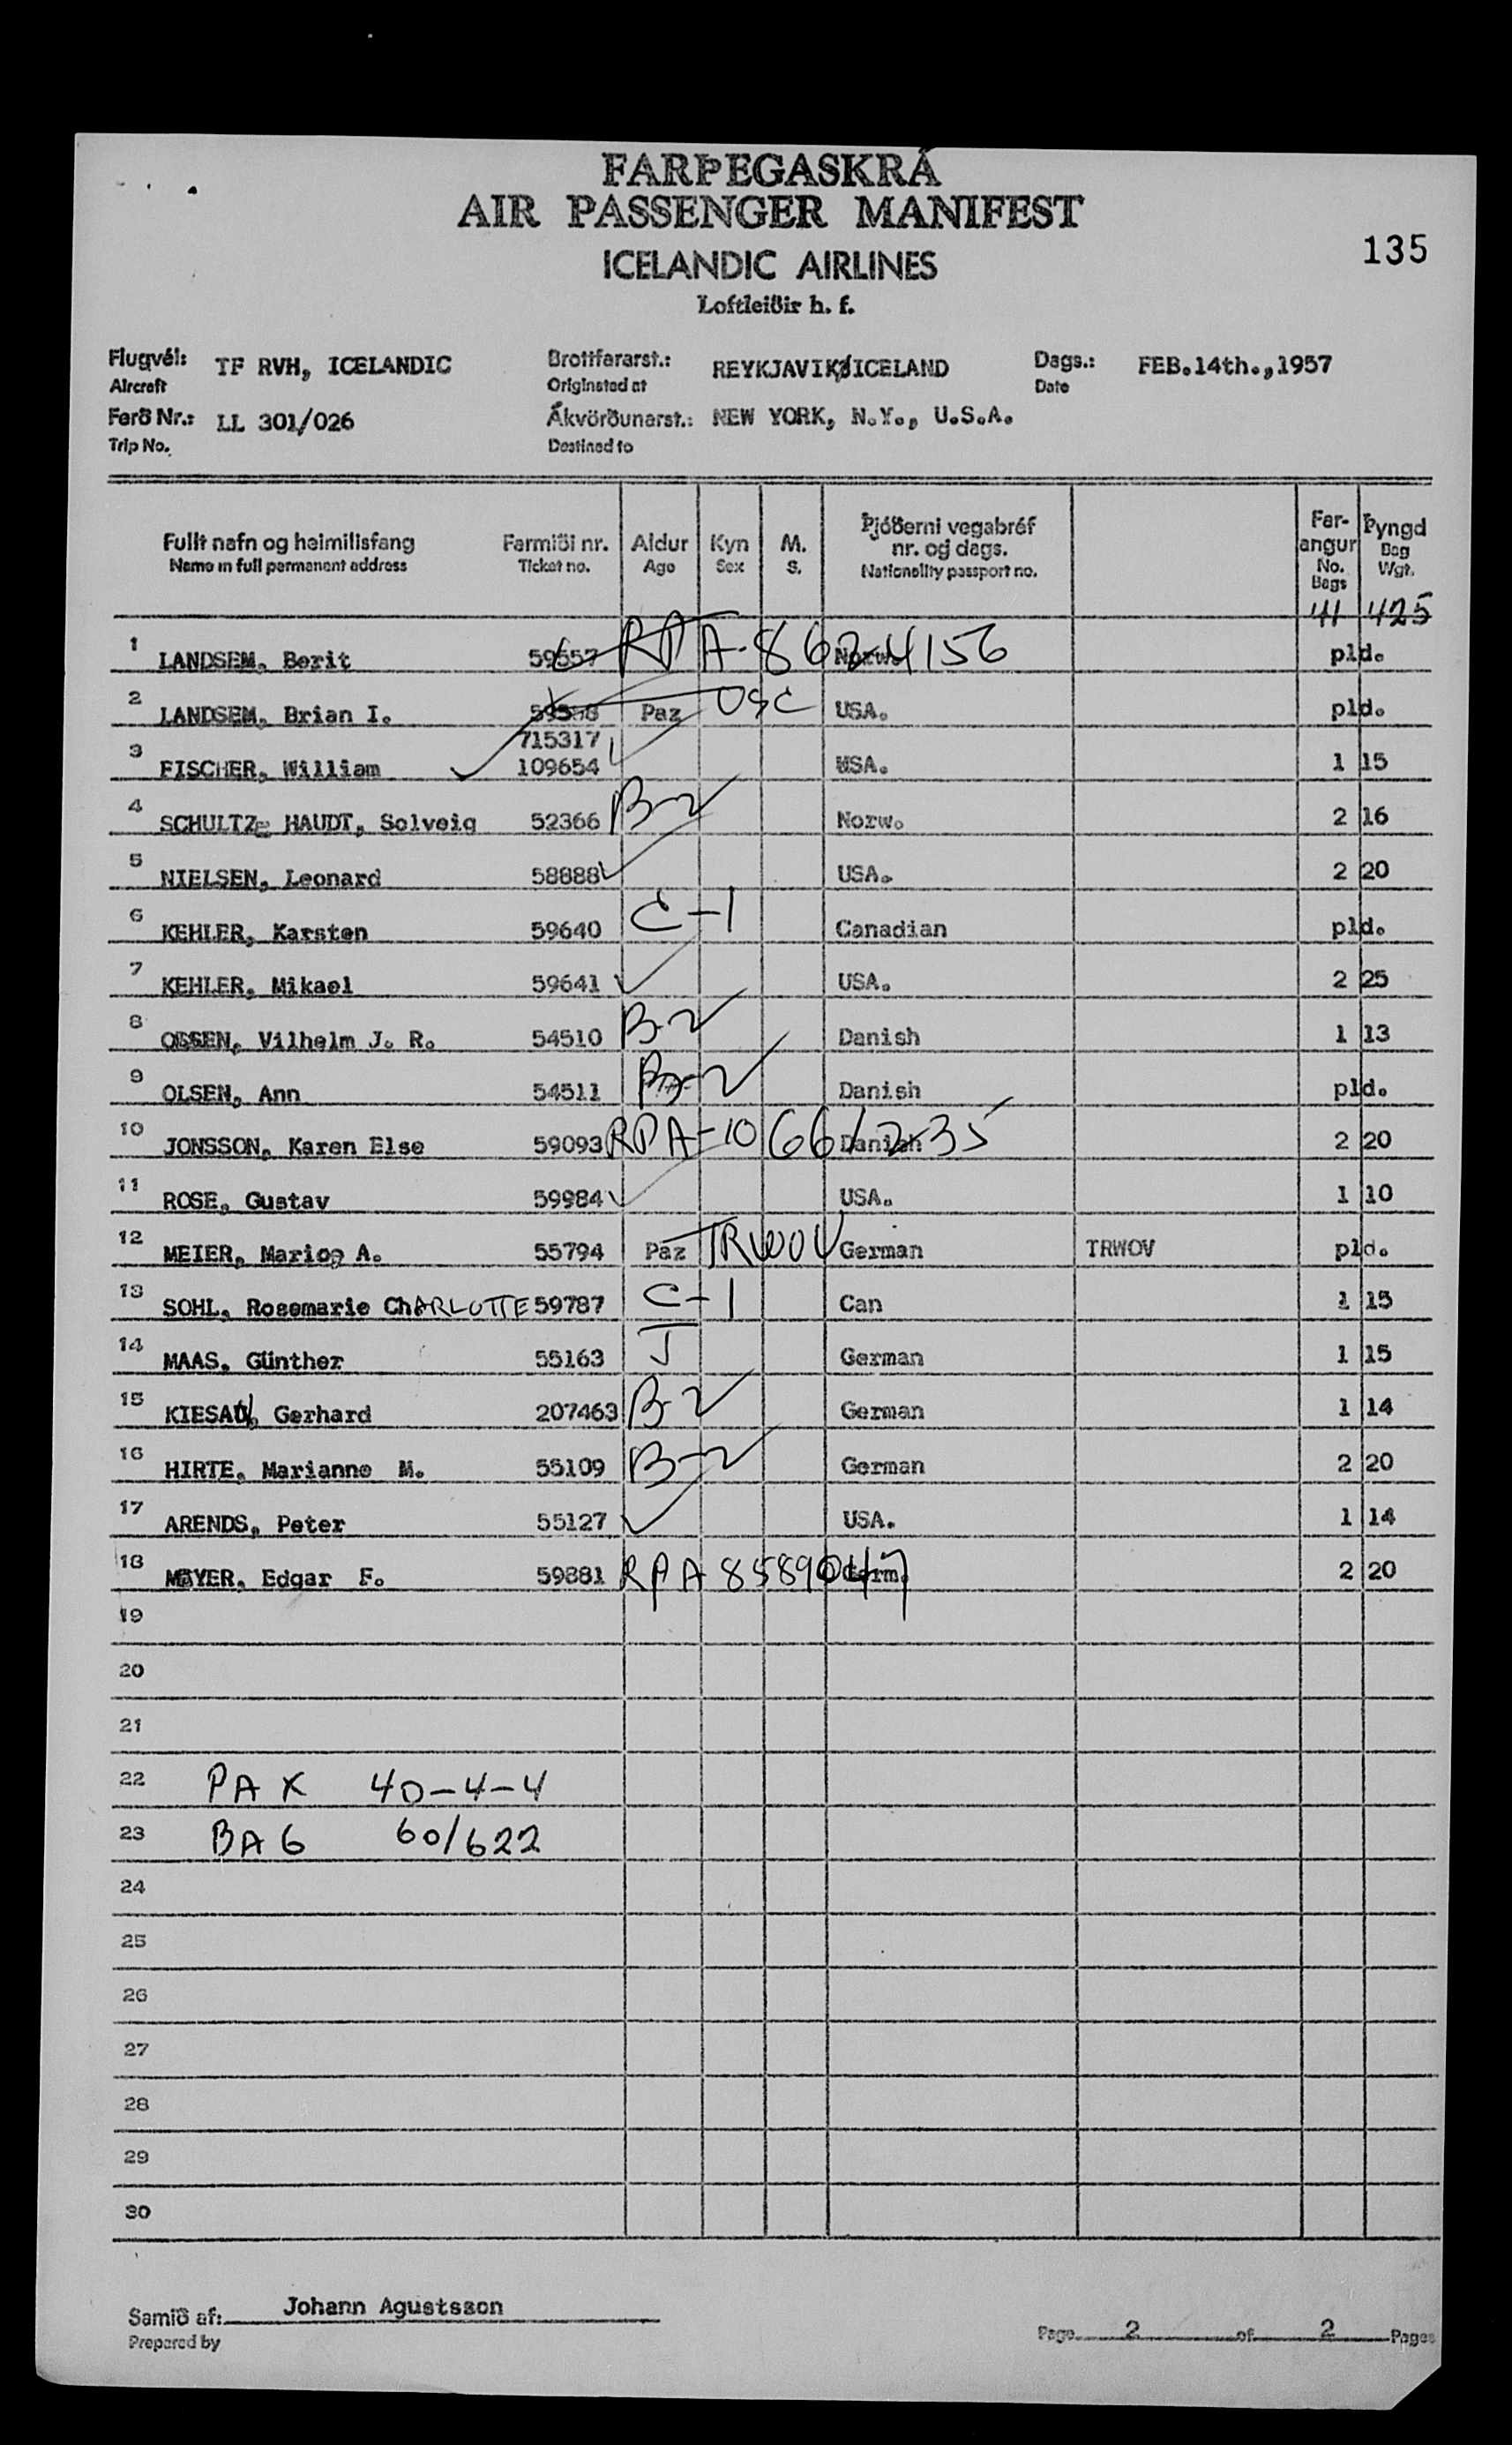 FARÞEGASKRÁ
AIR PASSENGER MANIFEST
ICELANDIC AIRLINES
135
Loftleiðir h. f.
Flugvél: TF RVH, ICELANDIC Brottfararst.: REYKJAVIK ICELAND Dags.: FEB.14th.,1957
Aircraft Originated at Date
Ferð Nr.: LL 301/026 Ákvörðunarst.: NEW YORK, N.Y., U.S.A.
Trip No. Destined to
Fullt nafn og heimilisfang Farmiði nr. Aldur Kyn M. Þjóðerni vegabréf nr. og dags. Farangur Þyngd
Name in full permanent address Ticket no. Age Sex S. Nationality passport no. No. Bags Bag Wgt.
41 425
1 LANDSEM, Berit 59557 RPA-8624156 Norw. pld.
2 LANDSEM, Brian I. 59558 Paz USC USA. pld.
715317
3 FISCHER, William 109654 USA. 1 15
4 SCHULTZ HAUDT, Solveig 52366 B-2 Norw. 2 16
5 NIELSEN, Leonard 58888 USA. 2 20
6 KEHLER, Karsten 59640 C-1 Canadian pld.
7 KEHLER, Mikael 59641 USA. 2 25
8 OLSEN, Vilhelm J. R. 54510 B-2 Danish 1 13
9 OLSEN, Ann 54511 B-2 Danish pld.
10 JONSSON, Karen Else 59093 RPA-10661235 Danish 2 20
11 ROSE, Gustav 59984 USA. 1 10
12 MEIER, Marion A. 55794 Paz TRWOV German TRWOV pld.
13 SOHL, Rosemarie ChARLOTTE 59787 C-1 Can 1 15
14 MAAS, Günther 55163 J German 1 15
15 KIESAU, Gerhard 207463 B-2 German 1 14
16 HIRTE, Marianne M. 55109 B-2 German 2 20
17 ARENDS, Peter 55127 USA. 1 14
18 MEYER, Edgar F. 59881 RPA 8589047 Germ. 2 20
19
20
21
22 PAX 40-4-4
23 BAG 60/622
24
25
26
27
28
29
30
Samið af: Johann Agustsson
Prepared by
Page 2 of 2 Pages